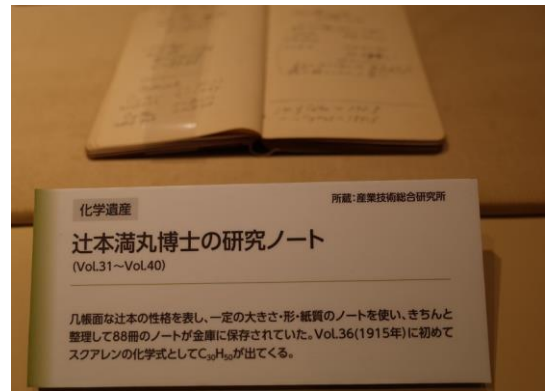 化学遺産
所蔵:産業技術総合研究所
辻本満丸博士の研究ノート
(Vol.31〜Vol.40)
几帳面な辻本の性格を表し、一定の大きさ・形・紙質のノートを使い、きちんと
整理して88冊のノートが金庫に保存されていた。Vol.36(1915年)に初めて
スクアレンの化学式としてC₃₀H₅₀が出てくる。